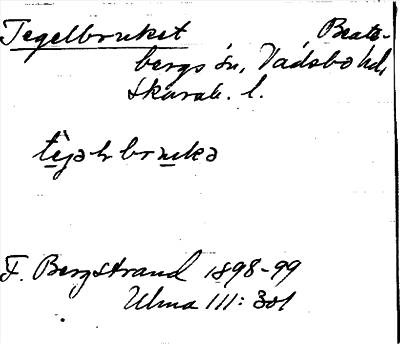 Tegelbruket Beate-
bergs sn, Vadsbo hd,
Skarab. l.
tèjəlbrukə
F. Bergstrand 1898-99
Ulma 111: 301